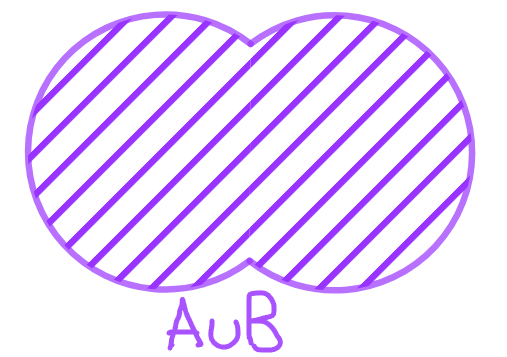 A∪B